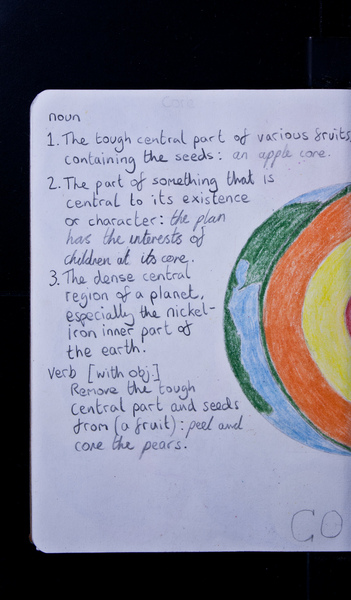 noun
1. The tough central part of various fruits,
containing the seeds: an apple core.
2. The part of something that is
central to its existence
or character: the plan
has the interests of
children at its core.
3. The dense central
region of a planet,
especially the nickel-
iron inner part of
the earth.
verb [with obj.]
Remove the tough
central part and seeds
from (a fruit): peel and
core the pears.
CO